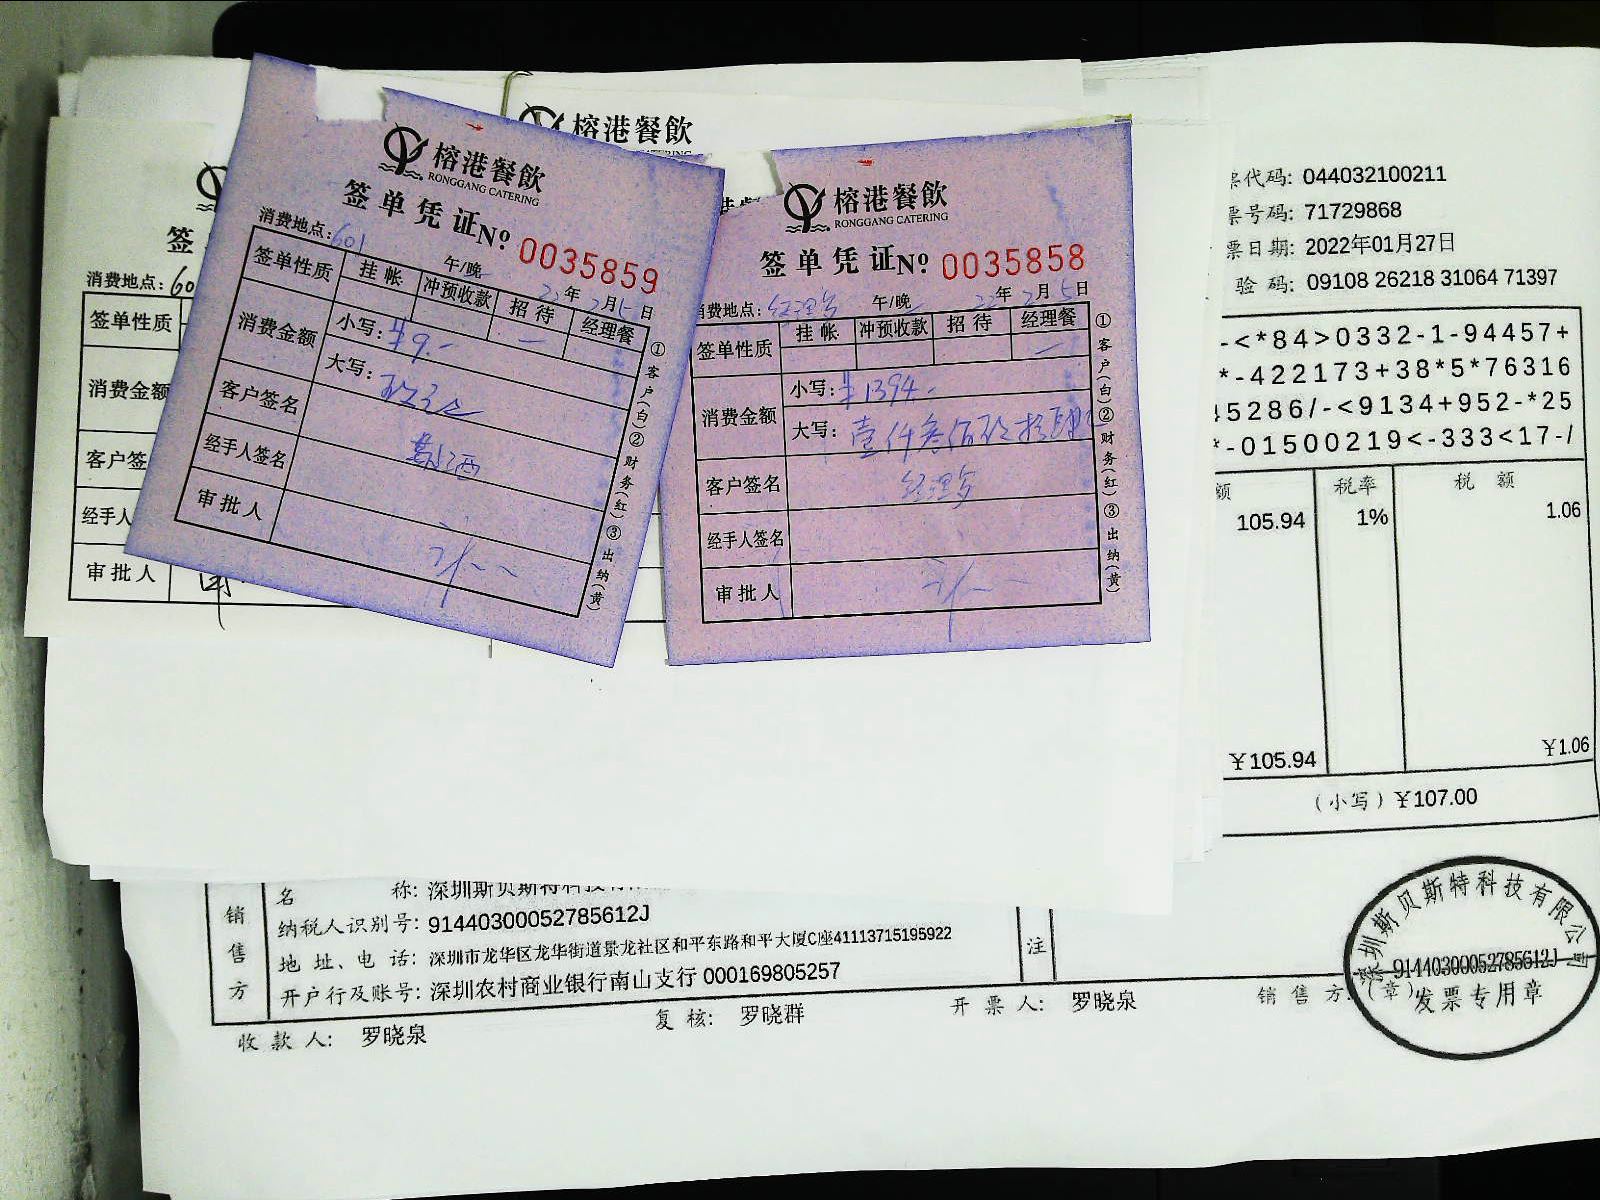 榕港餐飲
榕港餐飲
RONGGANG CATERING
签单凭证 № 0035859
消费地点: 601 午/晚 22年2月5日
签单性质 挂帐 冲预收款 招待 经理餐
消费金额 小写: ¥9.-
大写: 玖元正
客户签名
经手人签名
审批人
①客户(白)②财务(红)③出纳(黄)
榕港餐飲
RONGGANG CATERING
签单凭证 № 0035858
消费地点: 经理房 午/晚 22年2月5日
签单性质 挂帐 冲预收款 招待 经理餐
消费金额 小写: ¥1394.-
大写: 壹仟叁佰玖拾肆
客户签名 经理房
经手人签名
审批人
①客户(白)②财务(红)③出纳(黄)
签
消费地点: 60
签单性质
消费金额
客户签
经手人
审批人
票代码: 044032100211
票号码: 71729868
票日期: 2022年01月27日
验 码: 09108 26218 31064 71397
-<*84>0332-1-94457+
*-422173+38*5*76316
45286/-<9134+952-*25
*-01500219<-333<17-/
额 税率 税 额
105.94 1% 1.06
¥105.94 ¥1.06
(小写) ¥107.00
销售方
名 称: 深圳斯贝斯特科技有限
纳税人识别号: 91440300052785612J
地 址、电 话: 深圳市龙华区龙华街道景龙社区和平东路和平大厦C座41113715195922
开户行及账号: 深圳农村商业银行南山支行 000169805257
注
收 款 人: 罗晓泉 复 核: 罗晓群 开 票 人: 罗晓泉 销 售 方: (章)
深圳斯贝斯特科技有限公司
91440300052785612J
发票专用章